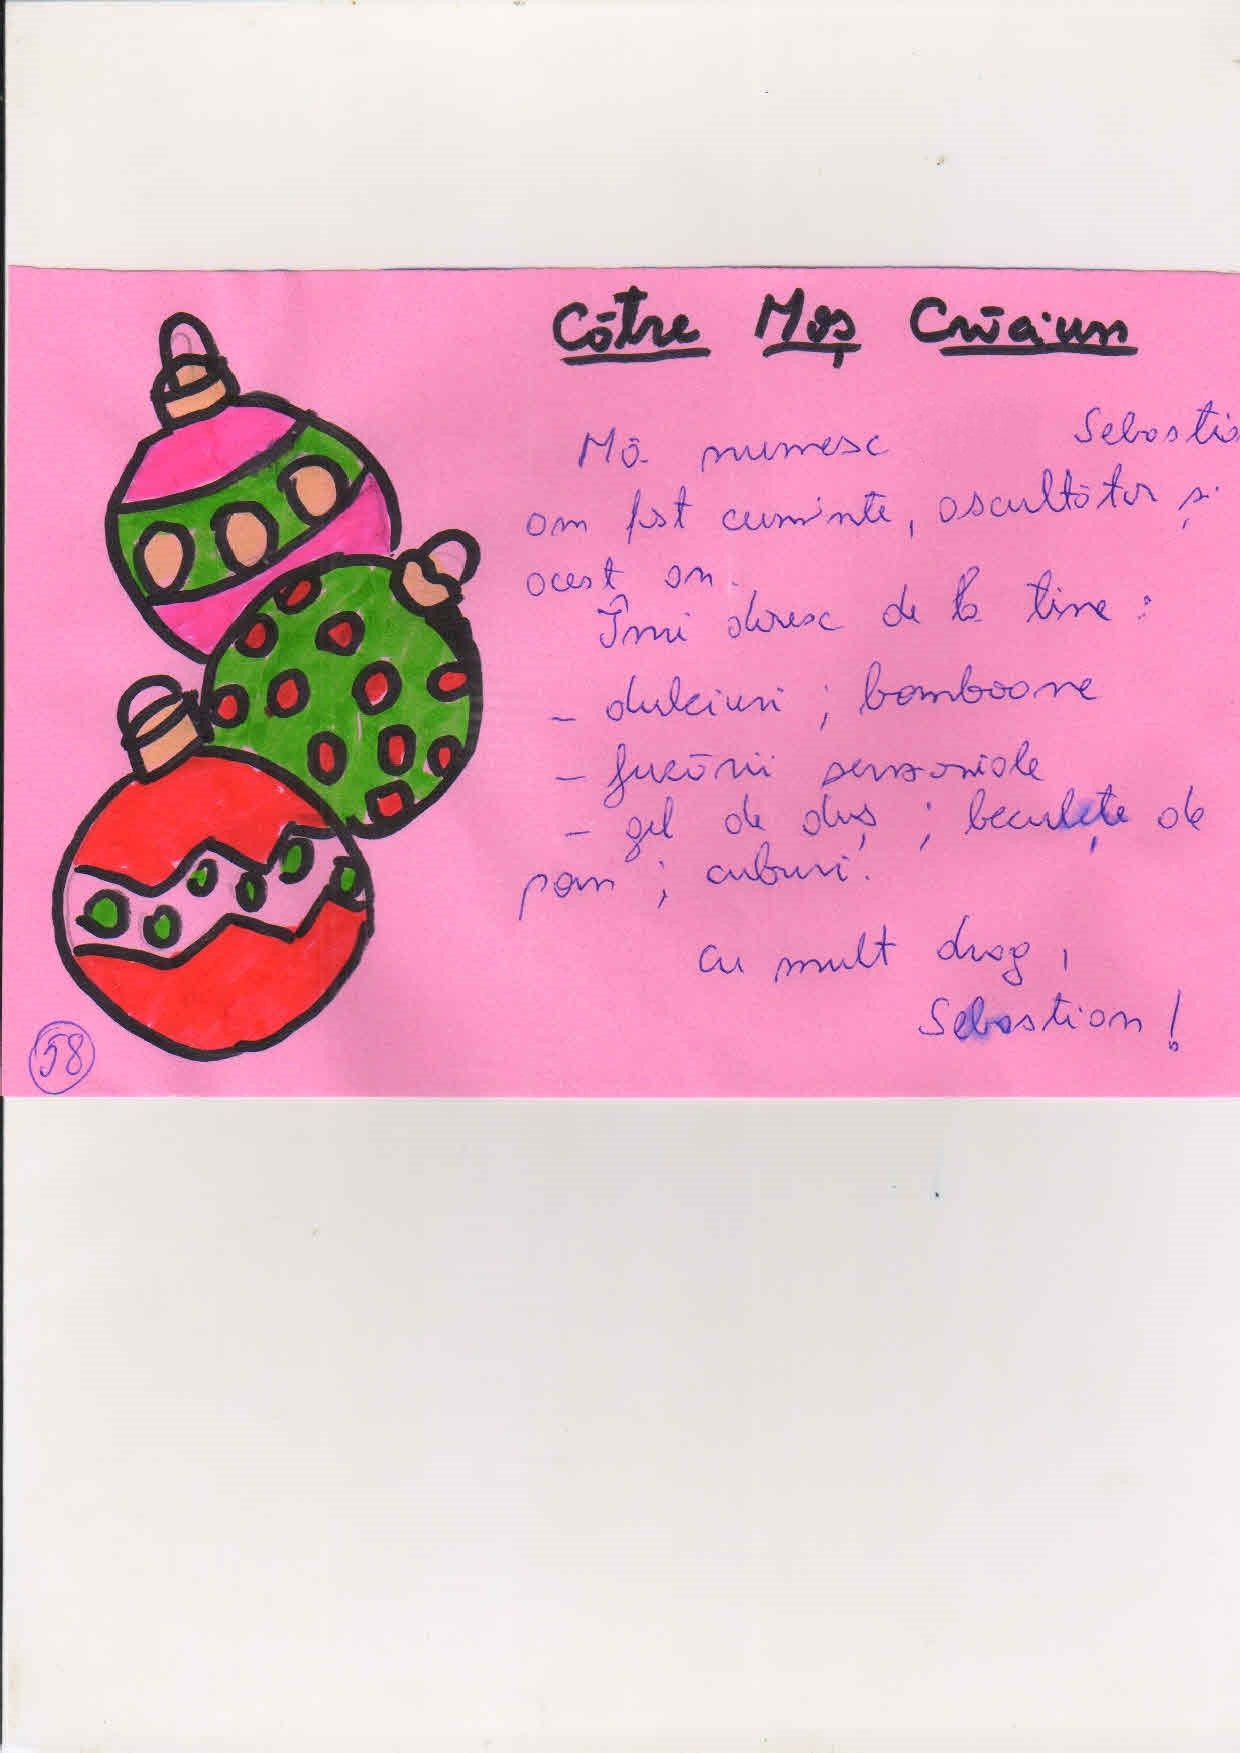 Către Moș Crăciun
Mă numesc Sebastia
am fost cuminte, ascultător și
acest an.
Îmi doresc de la tine:
- dulciuri; bomboane
- jucării senzoriale
- gel de duș; beculețe de
pom; cuburi.
cu mult drag,
Sebastian!
58